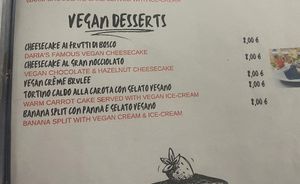 WARM CHOCOLATE CAKE SERVED WITH ICE-CREAM
VEGAN DESSERTS
CHEESECAKE AI FRUTTI DI BOSCO 8,00 €
DARIA'S FAMOUS VEGAN CHEESECAKE
CHEESECAKE AL GRAN NOCCIOLATO 8,00 €
VEGAN CHOCOLATE & HAZELNUT CHEESECAKE
VEGAN CRÈME BRULEE 8,00 €
TORTINO CALDO ALLA CAROTA CON GELATO VEGANO 8,00 €
WARM CARROT CAKE SERVED WITH VEGAN ICE-CREAM
BANANA SPLIT CON PANNA E GELATO VEGANO 8,00 €
BANANA SPLIT WITH VEGAN CREAM & ICE-CREAM